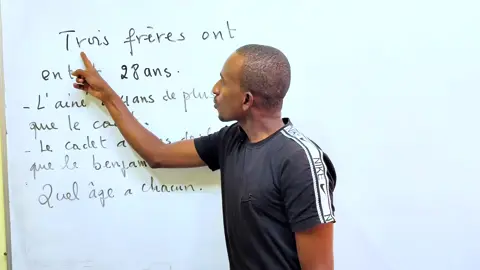 Trois frères ont
28 ans.
- L'aîné ans de plus
que le
- Le cadet a
que le
Quel âge a chacun.
NIKE